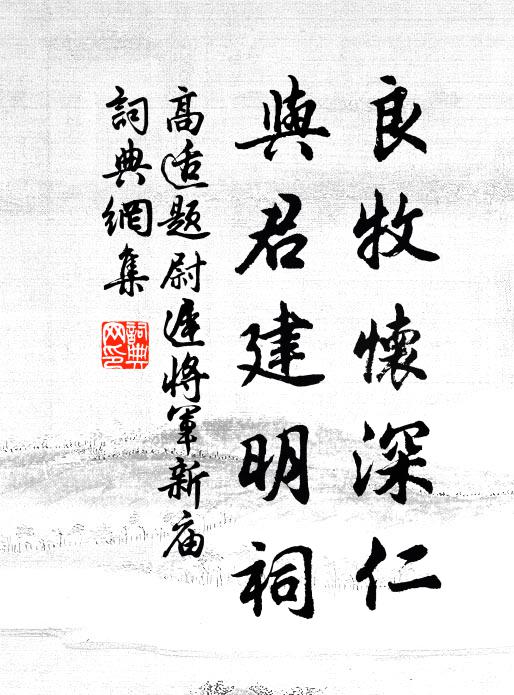 良牧懷深仁
與君建明祠
高适題尉遲將軍新庙
詞典網集
詞典
网印